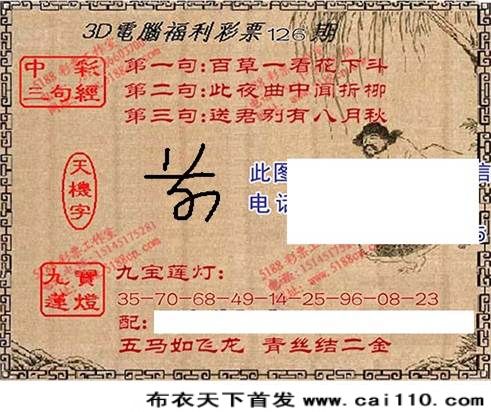 3D電腦福利彩票126期
中彩
三句經
第一句:百草一看花下斗
第二句:此夜曲中闻折柳
第三句:送君别有八月秋
天機字
此图
信
电话
5
九寶蓮燈
九宝莲灯:
35-70-68-49-14-25-96-08-23
配:
五马如飞龙 青丝结二金
布衣天下首发 www.cai110.com